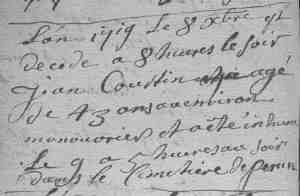 L'an 1719 Le 8 xbre est
decede a 8 heures le soir
Jean Coustin agé
de 43 ans ou environ
monouvrier et a eté inhumé
le 9 a heures au soir
dans le Cimetière de